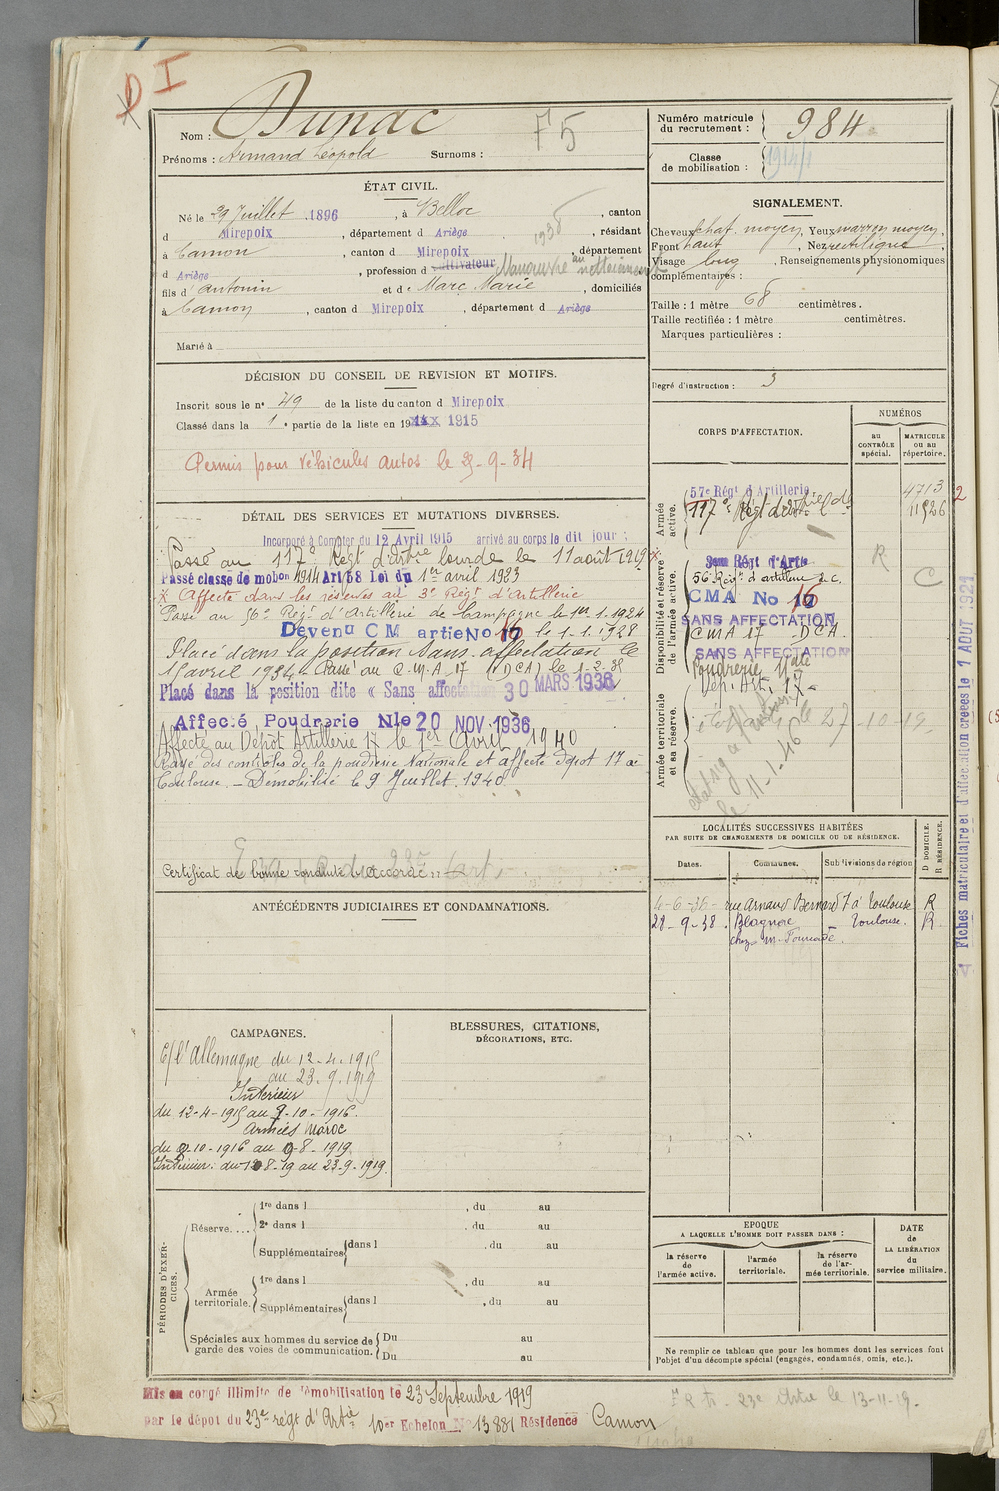 D I
Nom : Dunac
F5
Prénoms : Armand Léopold Surnoms :
Numéro matricule du recrutement : 984
Classe de mobilisation : 1914/1
ÉTAT CIVIL.
Né le 29 Juillet 1896, à Belloc, canton
d Mirepoix, département d Ariège, résidant
1938
à Camon, canton d Mirepoix, département
d Ariège, profession d cultivateur Manœuvre au nettoiement
fils d'Antonin et de Marc Marie, domiciliés
à Camon, canton d Mirepoix, département d Ariège
Marié à
SIGNALEMENT.
Cheveux chat. moyen, Yeux marron moyen,
Front haut, Nez rectiligne,
Visage long, Renseignements physionomiques
complémentaires :
Taille : 1 mètre 68 centimètres.
Taille rectifiée : 1 mètre centimètres.
Marques particulières :
Degré d'instruction : 3
DÉCISION DU CONSEIL DE REVISION ET MOTIFS.
Inscrit sous le n° 49 de la liste du canton d Mirepoix
Classé dans la 1e partie de la liste en 1915
Permis pour véhicules autos le 25-9-34
CORPS D'AFFECTATION.
NUMÉROS
au CONTRÔLE spécial.
MATRICULE ou au répertoire.
Armée active.
57e Régt d'Artillerie
4713 2
117e Régt d'artillerie lde
11526
Disponibilité et réserve de l'armée active.
3eme Régt d'Artie
R
56 Régt d'artillerie d. C.
C
CMA No 17 16
SANS AFFECTATION
CMA 17 DCA
SANS AFFECTATION
Poudrerie Nale
Dép. Art. 17
Armée territoriale et sa réserve.
le 27-10-19
le 11-1-46
DÉTAIL DES SERVICES ET MUTATIONS DIVERSES.
Incorporé à Compter du 12 Avril 1915 arrivé au corps le dit jour ;
Passé au 117e Régt d'artie lourde le 11 août 1919 x
Passé classe de mobon 1914 Art 58 Loi du 1er avril 1923
x Affecté dans les réserves au 3e Régt d'Artillerie
Passé au 56e Régt d'Artillerie de Campagne le 1er.1.1924
Devenu C M artie No 17 16 le 1-1-1928
Placé dans la position sans affectation le
15 avril 1934. Passé au C.M.A. 17 (DCA) le 1-2-35
Placé dans la position dite « Sans affectation 30 MARS 1936
Affecté Poudrerie Nle 20 NOV 1936
Affecté au Dépôt Artillerie 17 le 1er Avril 1940
Rayé des contrôles de la poudrerie Nationale et affecté dépôt 17 à
Toulouse. – Démobilisé le 9 Juillet 1940
Certificat de bonne conduite accordé
LOCALITÉS SUCCESSIVES HABITÉES
PAR SUITE DE CHANGEMENTS DE DOMICILE OU DE RÉSIDENCE.
D DOMICILE. R RÉSIDENCE.
Dates. Communes. Subdivisions de région
4-6-36 rue Arnaud Bernard 7 à Toulouse R
28-9-38. Blagnac Toulouse. R
chez M. Fourcade.
Fiches matriculaire et d'affectation créées le 1 AOUT 1921
ANTÉCÉDENTS JUDICIAIRES ET CONDAMNATIONS.
CAMPAGNES.
C/ l'Allemagne du 12-4-1915
au 23.9.1919
Intérieur
du 12-4-1915 au 9-10-1916.
Armées Maroc
du 9-10-1916 au 9-8-1919
Intérieur : du 10 8-19 au 23-9-1919
BLESSURES, CITATIONS,
DÉCORATIONS, ETC.
PÉRIODES D'EXERCICES.
Réserve....
1re dans l , du au
2e dans l , du au
Supplémentaires dans l , du au
Armée territoriale.
1re dans l , du au
Supplémentaires dans l , du au
Spéciales aux hommes du service de garde des voies de communication.
Du au
Du au
EPOQUE
A LAQUELLE L'HOMME DOIT PASSER DANS :
la réserve de l'armée active.
l'armée territoriale.
la réserve de l'armée territoriale.
DATE de LA LIBÉRATION du service militaire.
Ne remplir ce tableau que pour les hommes dont les services font
l'objet d'un décompte spécial (engagés, condamnés, omis, etc.).
Mis en congé illimité de démobilisation le 23 Septembre 1919
par le dépôt du 23e régt d'Artie 10er Echelon No 13881 Résidence Camon
F R A. 23e Artie le 13-11-19.